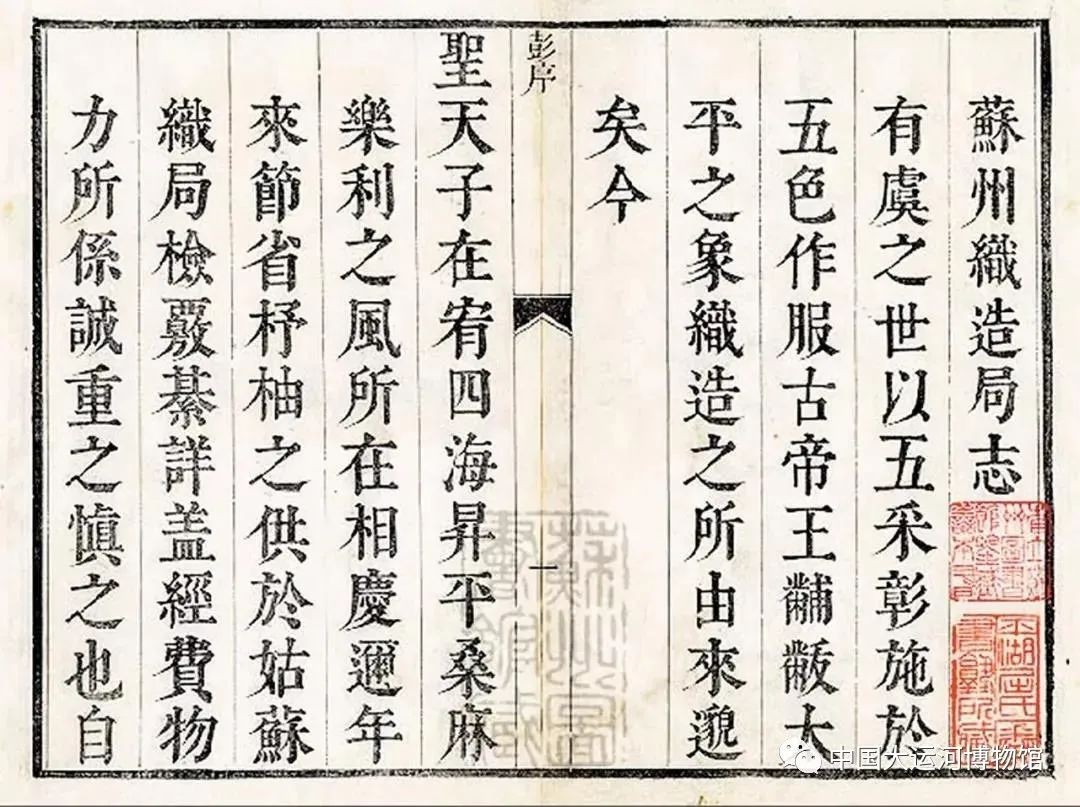 蘇州織造局志
有虞之世以五采彰施於
五色作服古帝王黼黻大
平之象織造之所由來邈
矣今
彭序
一
聖天子在宥四海昇平桑麻
樂利之風所在相慶邇年
來節省杼柚之供於姑蘇
織局檢覈綦詳盖經費物
力所係誠重之慎之也自
蘇州圖
書館藏
中国大运河博物馆